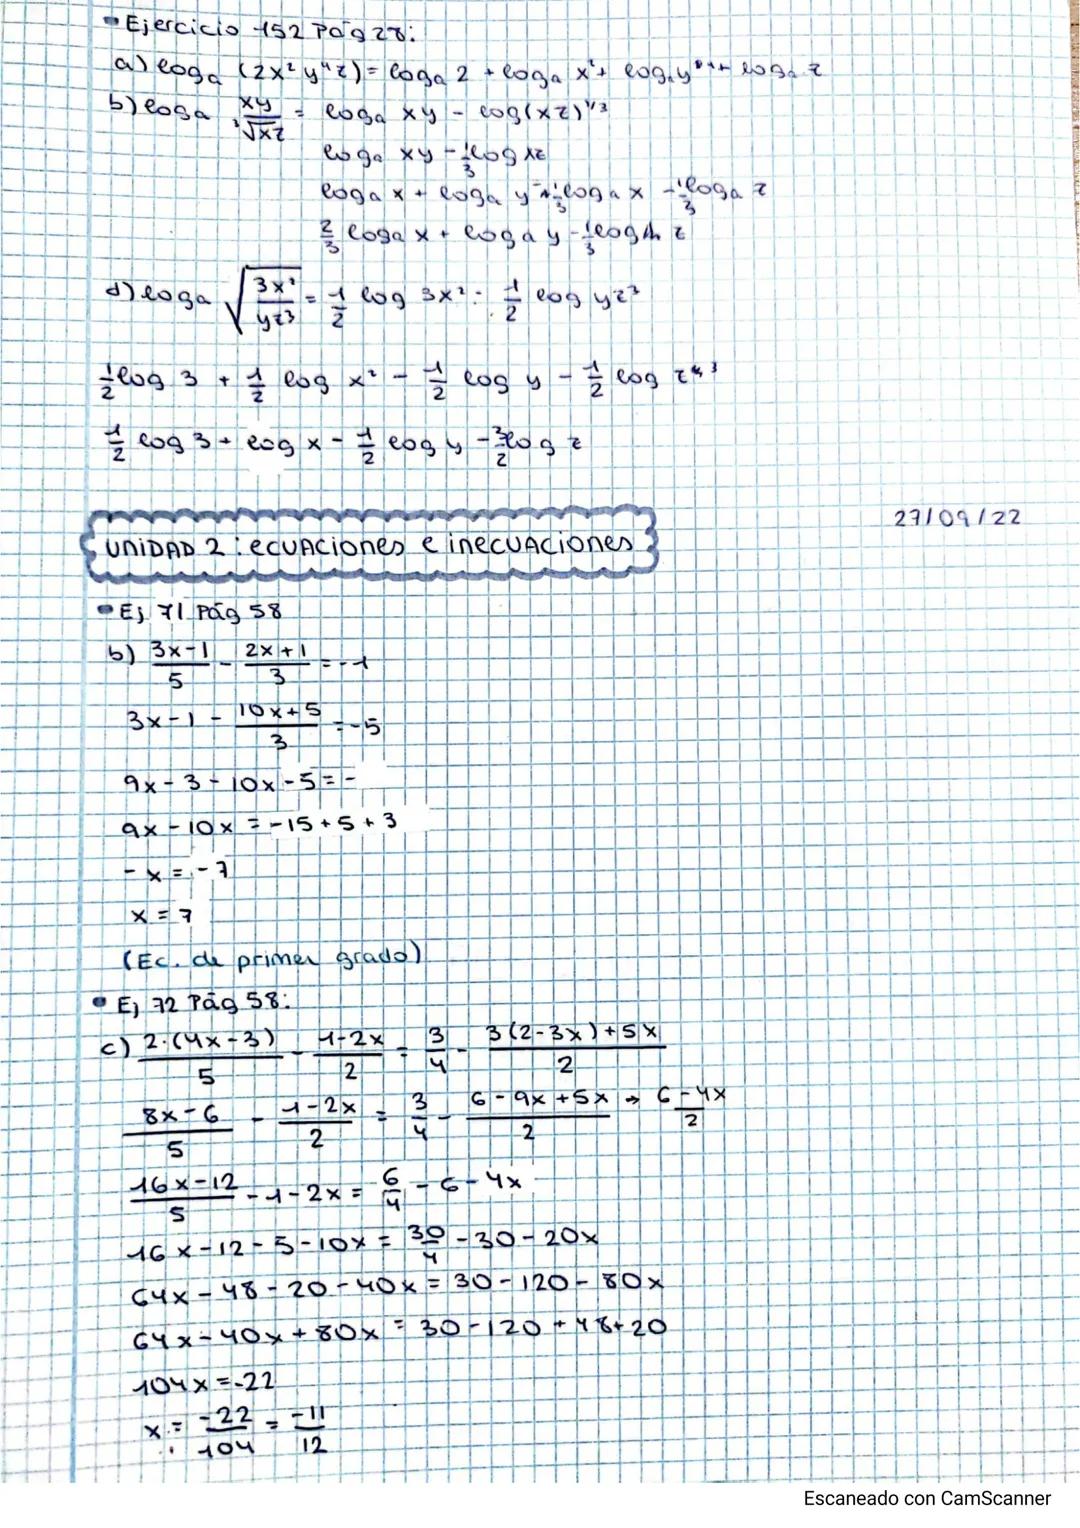 • Ejercicio 152 Pág 28:
a) loga (2x² y⁴ z) = loga 2 + loga x² + loga y⁴ + loga z
b) loga xy/∛xz = loga xy - log(xz)^1/3
loga xy - 1/3 log xz
loga x + loga y - 1/3 loga x - 1/3 loga z
2/3 loga x + loga y - 1/3 loga z
d) loga √(3x²/yz³) = 1/2 log 3x² - 1/2 log yz³
1/2 log 3 + 1/2 log x² - 1/2 log y - 1/2 log z³
1/2 log 3 + log x - 1/2 log y - 3/2 log z
27/09/22
UNIDAD 2: ecuaciones e inecuaciones
• Ej 71 Pág 58
b) 3x-1/5 - 2x+1/3 = -1
3x-1 - 10x+5/3 = -5
9x - 3 - 10x - 5 = -
9x - 10x = -15 + 5 + 3
-x = -7
x = 7
(Ec. de primer grado)
• Ej 72 Pág 58:
c) 2·(4x-3)/5 - 1-2x/2 = 3/4 - 3(2-3x)+5x/2
8x-6/5 - 1-2x/2 = 3/4 - 6-9x+5x/2 → 6-4x/2
16x-12/5 - 1-2x = 6/4 - 6-4x
16x-12-5-10x = 30/4 - 30-20x
64x - 48 - 20 - 40x = 30 - 120 - 80x
64x - 40x + 80x = 30 - 120 + 48 + 20
104x = -22
x = -22/104 = -11/12
Escaneado con CamScanner